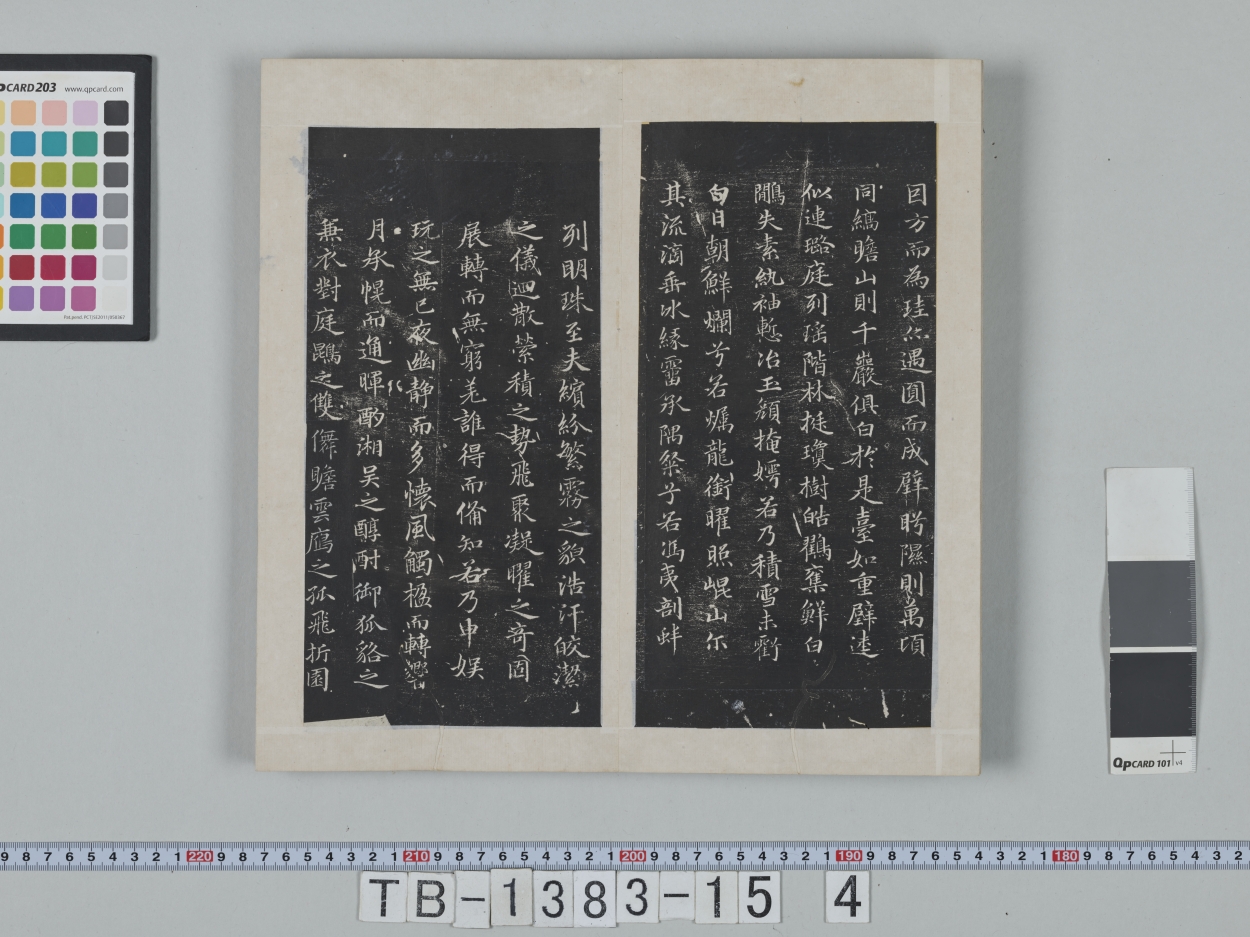 囙方而為珪亦遇圓而成璧眄隰則萬頃
同縞瞻山則千巖俱白於是臺如重璧逵
似連璐庭列瑤階林挺瓊樹皓鶴奪鮮白
鷳失素紈袖慙冶玉顏掩嫮若乃積雪未虧
白日朝鮮爛兮若燭龍銜曜照崐山尒
其流滴垂冰緣霤承隅粲兮若馮夷剖蚌
列明珠至夫繽紛繁霧之貌浩汗皎潔
之儀迴散縈積之勢飛聚凝曜之奇固
展轉而無窮羌誰得而備知若乃申娛
玩之無已夜幽靜而多懷風觸楹而轉響
月承幌而通暉酌湘吴之醇酎御狐貉之
兼衣對庭鵾之雙儛瞻雲鴈之孤飛折園
pCARD 203 www.qpcard.com
QpCARD 101 v4
9 8 7 6 5 4 3 2 1 220 9 8 7 6 5 4 3 2 1 210 9 8 7 6 5 4 3 2 1 200 9 8 7 6 5 4 3 2 1 190 9 8 7 6 5 4 3 2 1 180 9 8 7 6 5 4 3 2
TB-1383-15 4